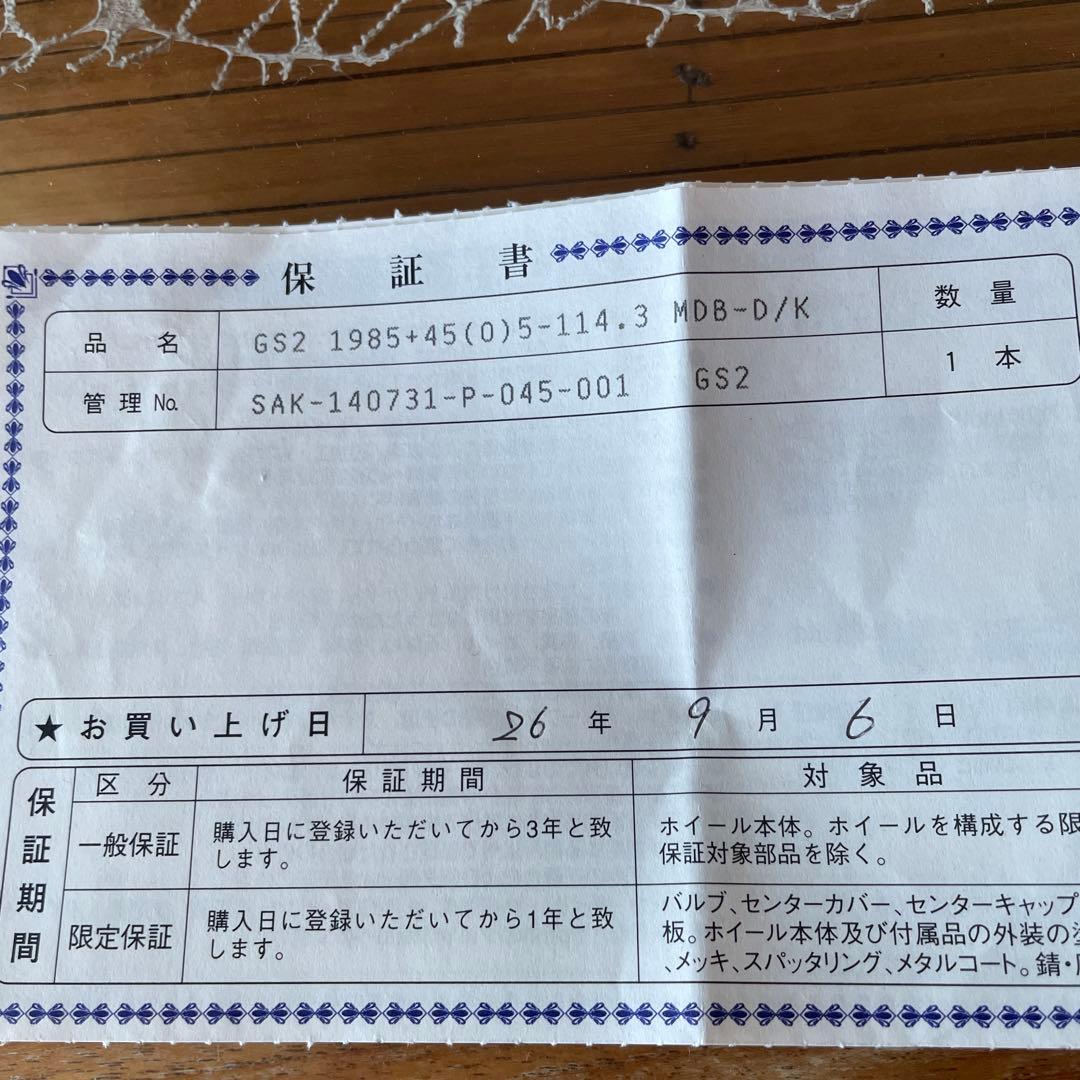 保証書
品名 GS2 1985+45(0)5-114.3 MDB-D/K 数量
管理No. SAK-140731-P-045-001 GS2 1本
★お買い上げ日 26年 9月 6日
保証期間
区分 保証期間 対象品
一般保証 購入日に登録いただいてから3年と致
します。
ホイール本体。ホイールを構成する限
保証対象部品を除く。
限定保証 購入日に登録いただいてから1年と致
します。
バルブ、センターカバー、センターキャップ
板。ホイール本体及び付属品の外装の塗
、メッキ、スパッタリング、メタルコート。錆・